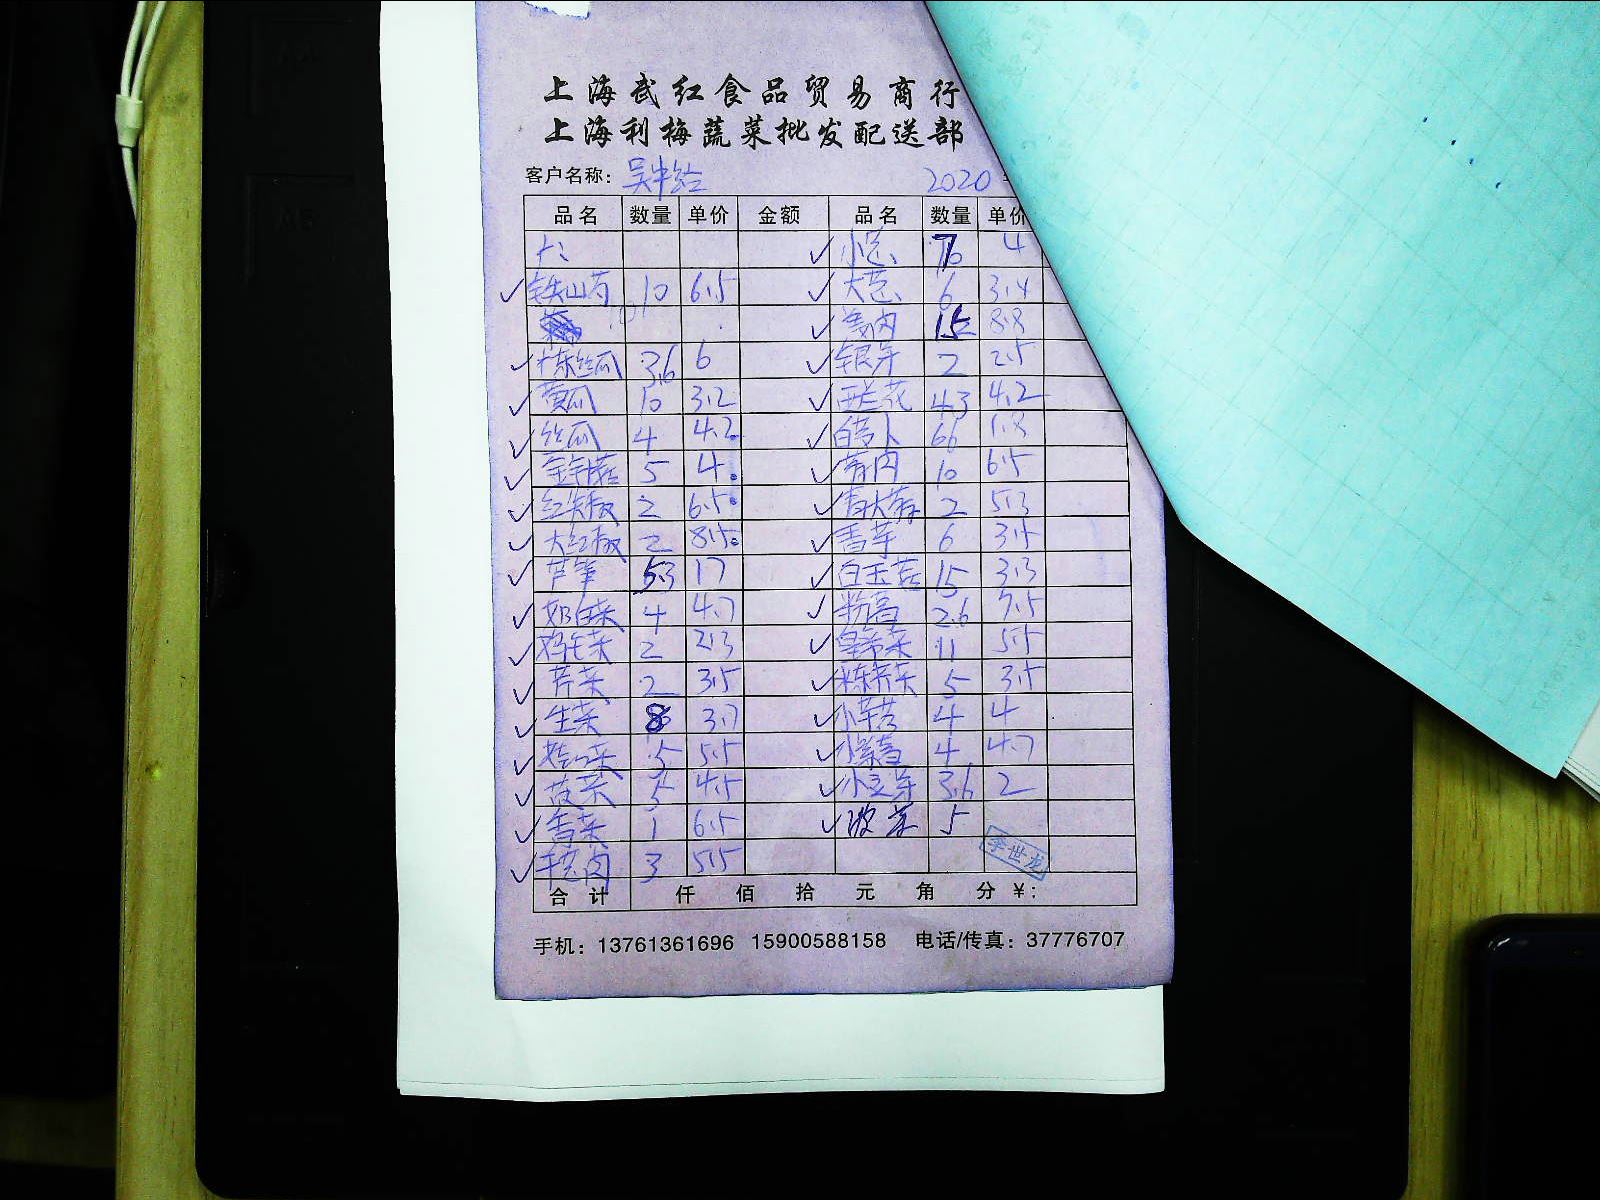 上海武红食品贸易商行
上海利梅蔬菜批发配送部
客户名称: 2020
品名 数量 单价 金额 品名 数量 单价
小葱 4
铁山药 10 6.5 大葱 6 3.4
15 8.8
3.6 6 银牙 2 2.5
黄瓜 10 3.2 西兰花 4.3 4.2
丝瓜 4 4.2 白萝卜 66 1.8
金针菇 5 4 10 6.5
红尖椒 2 6.5 青大蒜 2 5.3
大红椒 2 8.5 香芋 6 3.5
芦笋 5.3 17 白玉菇 15 3.3
奶白菜 4 4.7 2.6 7.5
鸡毛菜 2 2.3 11 5.5
芹菜 2 3.5 5 3.5
生菜 8 3.7 4 4
5 5.5 4 4.7
菠菜 5 4.5 小豆芽 3.6 2
香菜 1 6.5 5
3 5.5 李世龙
合计 仟 佰 拾 元 角 分 ¥:
手机: 13761361696 15900588158 电话/传真: 37776707